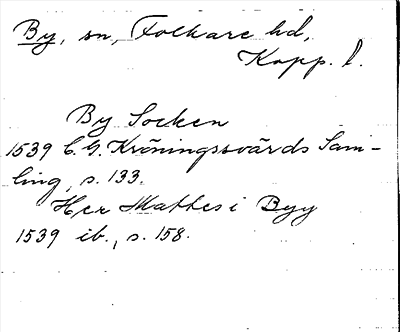 By, sn, Folkare hd,
Kopp. l.
By Socken
1539 C. G. Kröningssvärds Sam-
ling, s. 133.
Her Mattes i Byy
1539 ib., s. 158.